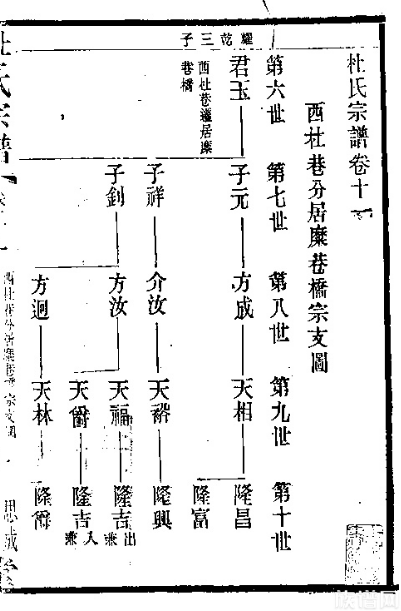 杜氏宗譜卷十
西杜巷分居糜巷橋宗支圖
第六世
第七世
第八世
第九世
第十世
耀乾三子
君玉
西杜巷遷居糜
巷橋
子元
方成
天相
隆昌
隆富
子祥
介汝
天裕
隆興
子釗
方汝
天福
隆吉
出兼
天爵
隆吉
入兼
方迴
天林
隆爵
杜氏宗譜
西杜巷分居糜巷橋宗支圖
思誠